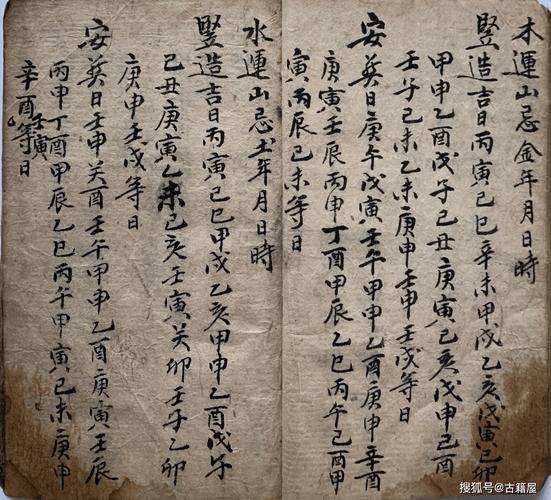 木運山忌金年月日時
竪造吉日丙寅己巳辛未甲戌乙亥戊寅己卯
甲申乙酉戊子己丑庚寅己亥戊申己酉
壬子己未乙未庚申壬申壬戌等日
安葬日庚午戊寅壬午甲申乙酉庚申辛酉
庚寅壬辰丙申丁酉甲辰乙巳丙午己酉甲
寅丙辰己未等日
水運山忌土年月日時
竪造吉日丙寅己巳甲戌乙亥甲申乙酉戊子
己丑庚寅乙未己亥壬寅癸卯壬子乙卯
庚申壬戌等日
安葬日壬申癸酉壬午甲申乙酉庚寅壬辰
丙申丁酉甲辰乙巳丙午甲寅己未庚申
辛酉壬寅等日
搜狐号@古籍屋